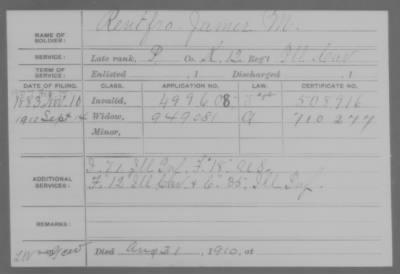 NAME OF SOLDIER: Rentfro James M.
SERVICE: Late rank, P Co. K, 12 Reg't Ill. Cav
TERM OF SERVICE: Enlisted , 1 Discharged , 1
DATE OF FILING. CLASS. APPLICATION NO. LAW. CERTIFICATE NO.
1883 Nov. 10 Invalid, 499608 508916
1910 Sept 14 Widow, 949081 a 710277
Minor,
ADDITIONAL SERVICES: I. 71 Ill Inf. F. 18" U.S.
F. 12 Ill Cav & C. 35" Ill Inf.
REMARKS:
Died Aug 31 , 1910, at